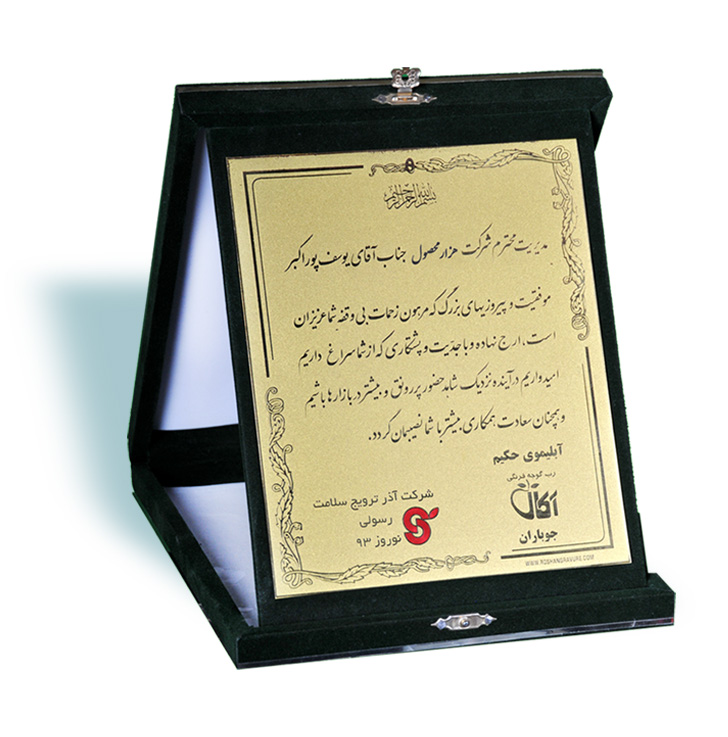 بسم الله الرحمن الرحیم
مدیریت محترم شرکت هزار محصول جناب آقای یوسف پوراکبر
موفقیت و پیروزیهای بزرگ که مرهون زحمات بی وقفه شما عزیزان
است، ارج نهاده و با جدیت و پشتکاری که از شما سراغ داریم
امیدواریم در آینده نزدیک شاهد حضور پررونق و بیشتر در بازارها باشیم
و همچنان سعادت همکاری بیشتر با شما نصیبمان گردد.
آبلیموی حکیم
رب گوجه فرنگی
آکال
جوباران
شرکت آذر ترویج سلامت
رسولی
نوروز ۹۳
WWW.ROSHANGRAVURE.COM